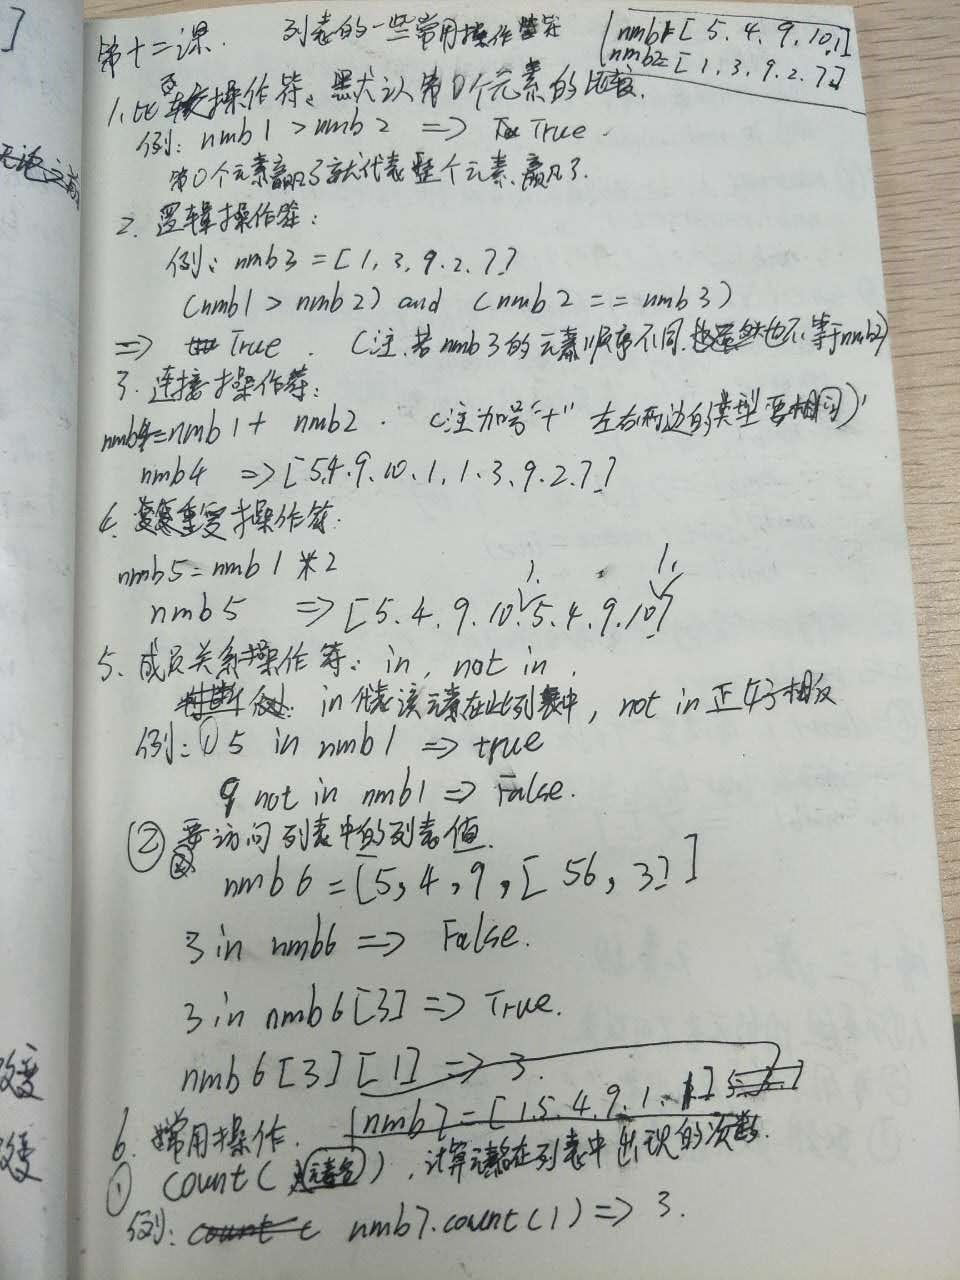 ]
第十二课. 列表的一些常用操作符
nmb1=[5.4.9.10.1]
nmb2=[1.3.9.2.7]
1.比较操作符、默认第0个元素的比较.
例: nmb1 > nmb2 => True.
第0个元素赢了就代表整个元素赢了.
2.逻辑操作符:
例: nmb3 = [1.3.9.2.7]
(nmb1 > nmb2) and (nmb2 == nmb3)
=> True. (注.若nmb3的元素顺序不同.虽然也不等于nmb2)
3.连接操作符:
nmb4=nmb1 + nmb2. (注加号"+"左右两边的类型要相同)
nmb4 => [5.4.9.10.1.1.3.9.2.7.]
4.重复操作符.
nmb5=nmb1*2
1. 1.
nmb5 => [5.4.9.10.5.4.9.10]
5.成员关系操作符: in, not in.
in代表该元素在此列表中, not in正好相反
例: ①5 in nmb1 => true
9 not in nmb1 => False.
② 要访问列表中的列表值.
nmb6 = [5,4,9,[56,3]]
3 in nmb6 => False.
3 in nmb6[3] => True.
nmb6[3][1] => 3.
6.常用操作. [nmb7=[1.5.4.9.1.1]
① count(元素名), 计算元素在列表中出现的次数.
例: nmb7.count(1) => 3.
改变
改变